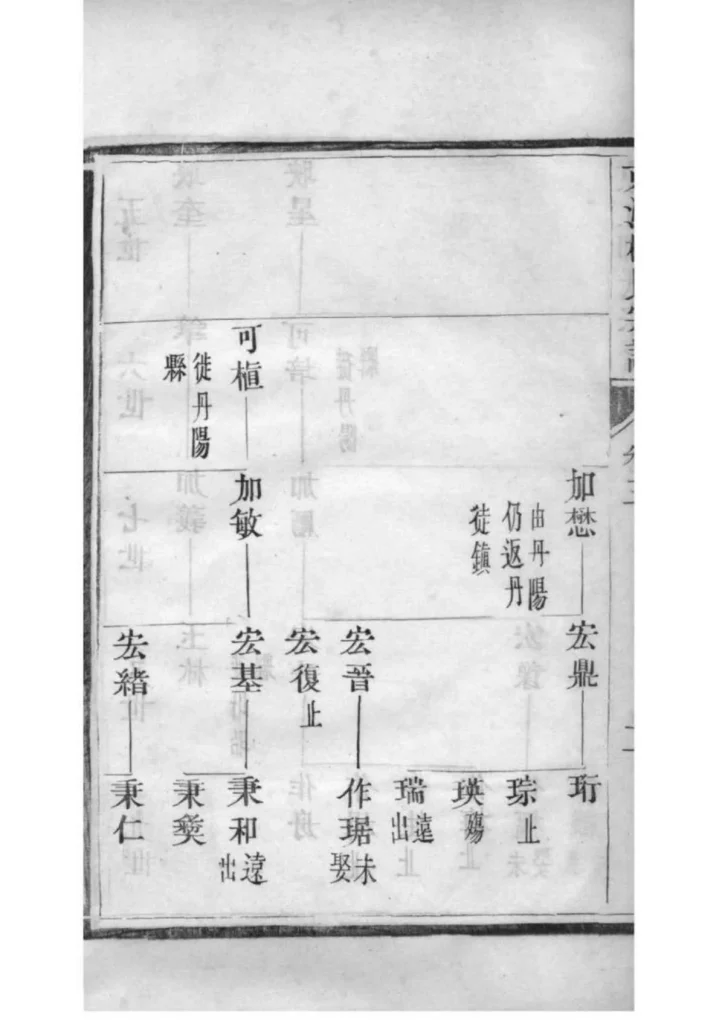 加懋
由丹陽
仍返丹
徒鎮
宏鼎
珩
琮
止
瑛
殤
瑞
遠
出
宏晋
作琚
未
娶
宏復
止
可植
徙丹陽
縣
加敏
宏基
秉和
遠
出
秉燮
宏緒
秉仁